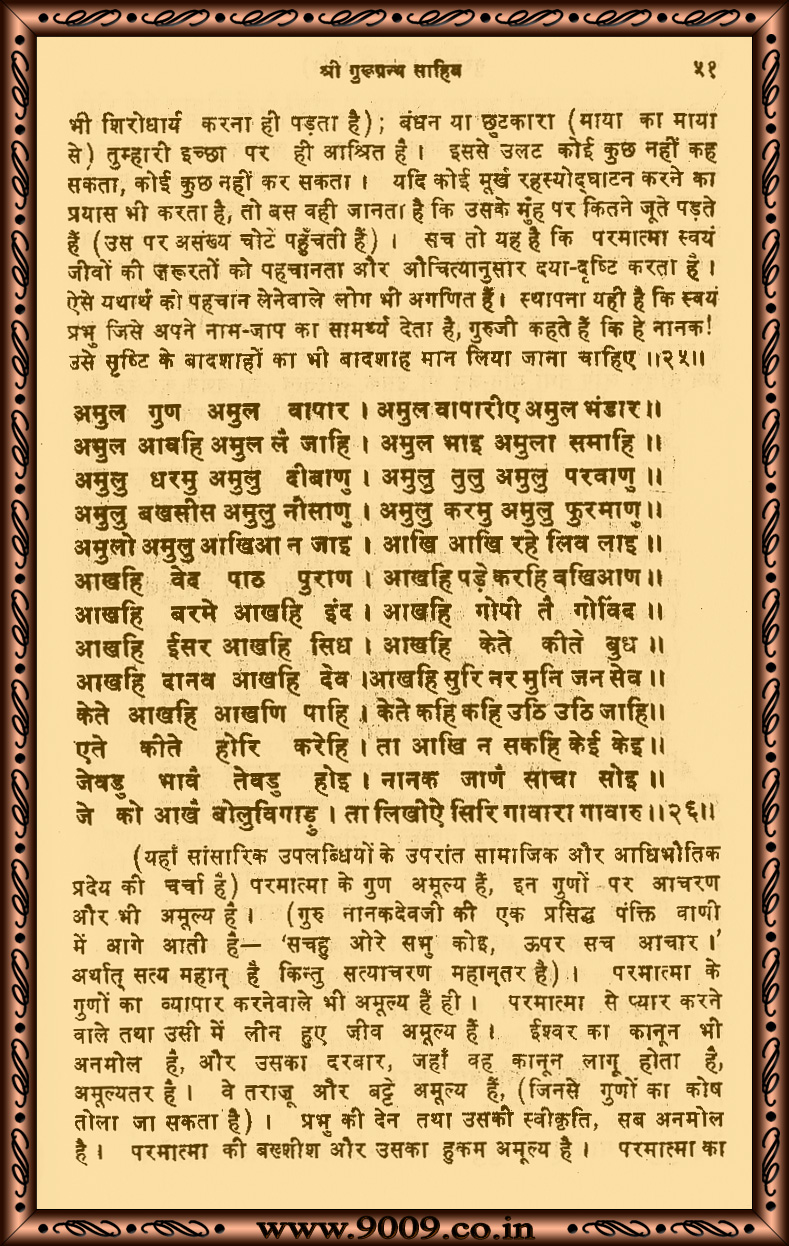 श्री गुरूग्रन्थ साहिब ५१
भी शिरोधार्य करना ही पड़ता है); बंधन या छुटकारा (माया का माया
से) तुम्हारी इच्छा पर ही आश्रित है। इससे उलट कोई कुछ नहीं कह
सकता, कोई कुछ नहीं कर सकता। यदि कोई मूर्ख रहस्योद्घाटन करने का
प्रयास भी करता है, तो बस वही जानता है कि उसके मुंह पर कितने जूते पड़ते
हैं (उस पर असंख्य चोटें पहुँचती हैं)। सच तो यह है कि परमात्मा स्वयं
जीवों की ज़रूरतों को पहचानता और औचित्यानुसार दया-दृष्टि करता है।
ऐसे यथार्थ को पहचान लेनेवाले लोग भी अगणित हैं। स्थापना यही है कि स्वयं
प्रभु जिसे अपने नाम-जाप का सामर्थ्य देता है, गुरुजी कहते हैं कि हे नानक!
उसे सृष्टि के बादशाहों का भी बादशाह मान लिया जाना चाहिए ॥२५॥
अमुल गुण अमुल वापार । अमुल वापारीए अमुल भंडार॥
अमुल आवहि अमुल लै जाहि । अमुल भाइ अमुला समाहि ॥
अमुलु धरमु अमुलु दीबाणु । अमुलु तुलु अमुलु परवाणु ॥
अमुलु बखसीस अमुलु नीसाणु । अमुलु करमु अमुलु फुरमाणु॥
अमुलो अमुलु आखिआ न जाइ । आखि आखि रहे लिव लाइ ॥
आखहि वेद पाठ पुराण । आखहि पड़े करहि वखिआण॥
आखहि बरमे आखहि इंद । आखहि गोपी तै गोविंद ॥
आखहि ईसर आखहि सिध । आखहि केते कीते बुध ॥
आखहि दानव आखहि देव ।आखहि सुरि नर मुनि जन सेव॥
केते आखहि आखणि पाहि । केते कहि कहि उठि उठि जाहि॥
एते कीते होरि करेहि । ता आखि न सकहि केई केइ॥
जेवडु भावै तेवडु होइ । नानक जाणै साचा सोइ ॥
जे को आखै बोलुविगाड़ु । ता लिखीऐ सिरि गावारा गावारु॥२६॥
(यहाँ सांसारिक उपलब्धियों के उपरांत सामाजिक और आधिभौतिक
प्रदेय की चर्चा है) परमात्मा के गुण अमूल्य हैं, इन गुणों पर आचरण
और भी अमूल्य है। (गुरु नानकदेवजी की एक प्रसिद्ध पंक्ति वाणी
में आगे आती है— ‘सचहु ओरे सभु कोइ, ऊपर सच आचार।’
अर्थात् सत्य महान् है किन्तु सत्याचरण महान्‌तर है)। परमात्मा के
गुणों का व्यापार करनेवाले भी अमूल्य हैं ही। परमात्मा से प्यार करने
वाले तथा उसी में लीन हुए जीव अमूल्य हैं। ईश्वर का कानून भी
अनमोल है, और उसका दरबार, जहाँ वह कानून लागू होता है,
अमूल्यतर है। वे तराजू और बट्टे अमूल्य हैं, (जिनसे गुणों का कोष
तोला जा सकता है)। प्रभु की देन तथा उसकी स्वीकृति, सब अनमोल
है। परमात्मा की बख़्शीश और उसका हुकम अमूल्य है। परमात्मा का
www.9009.co.in